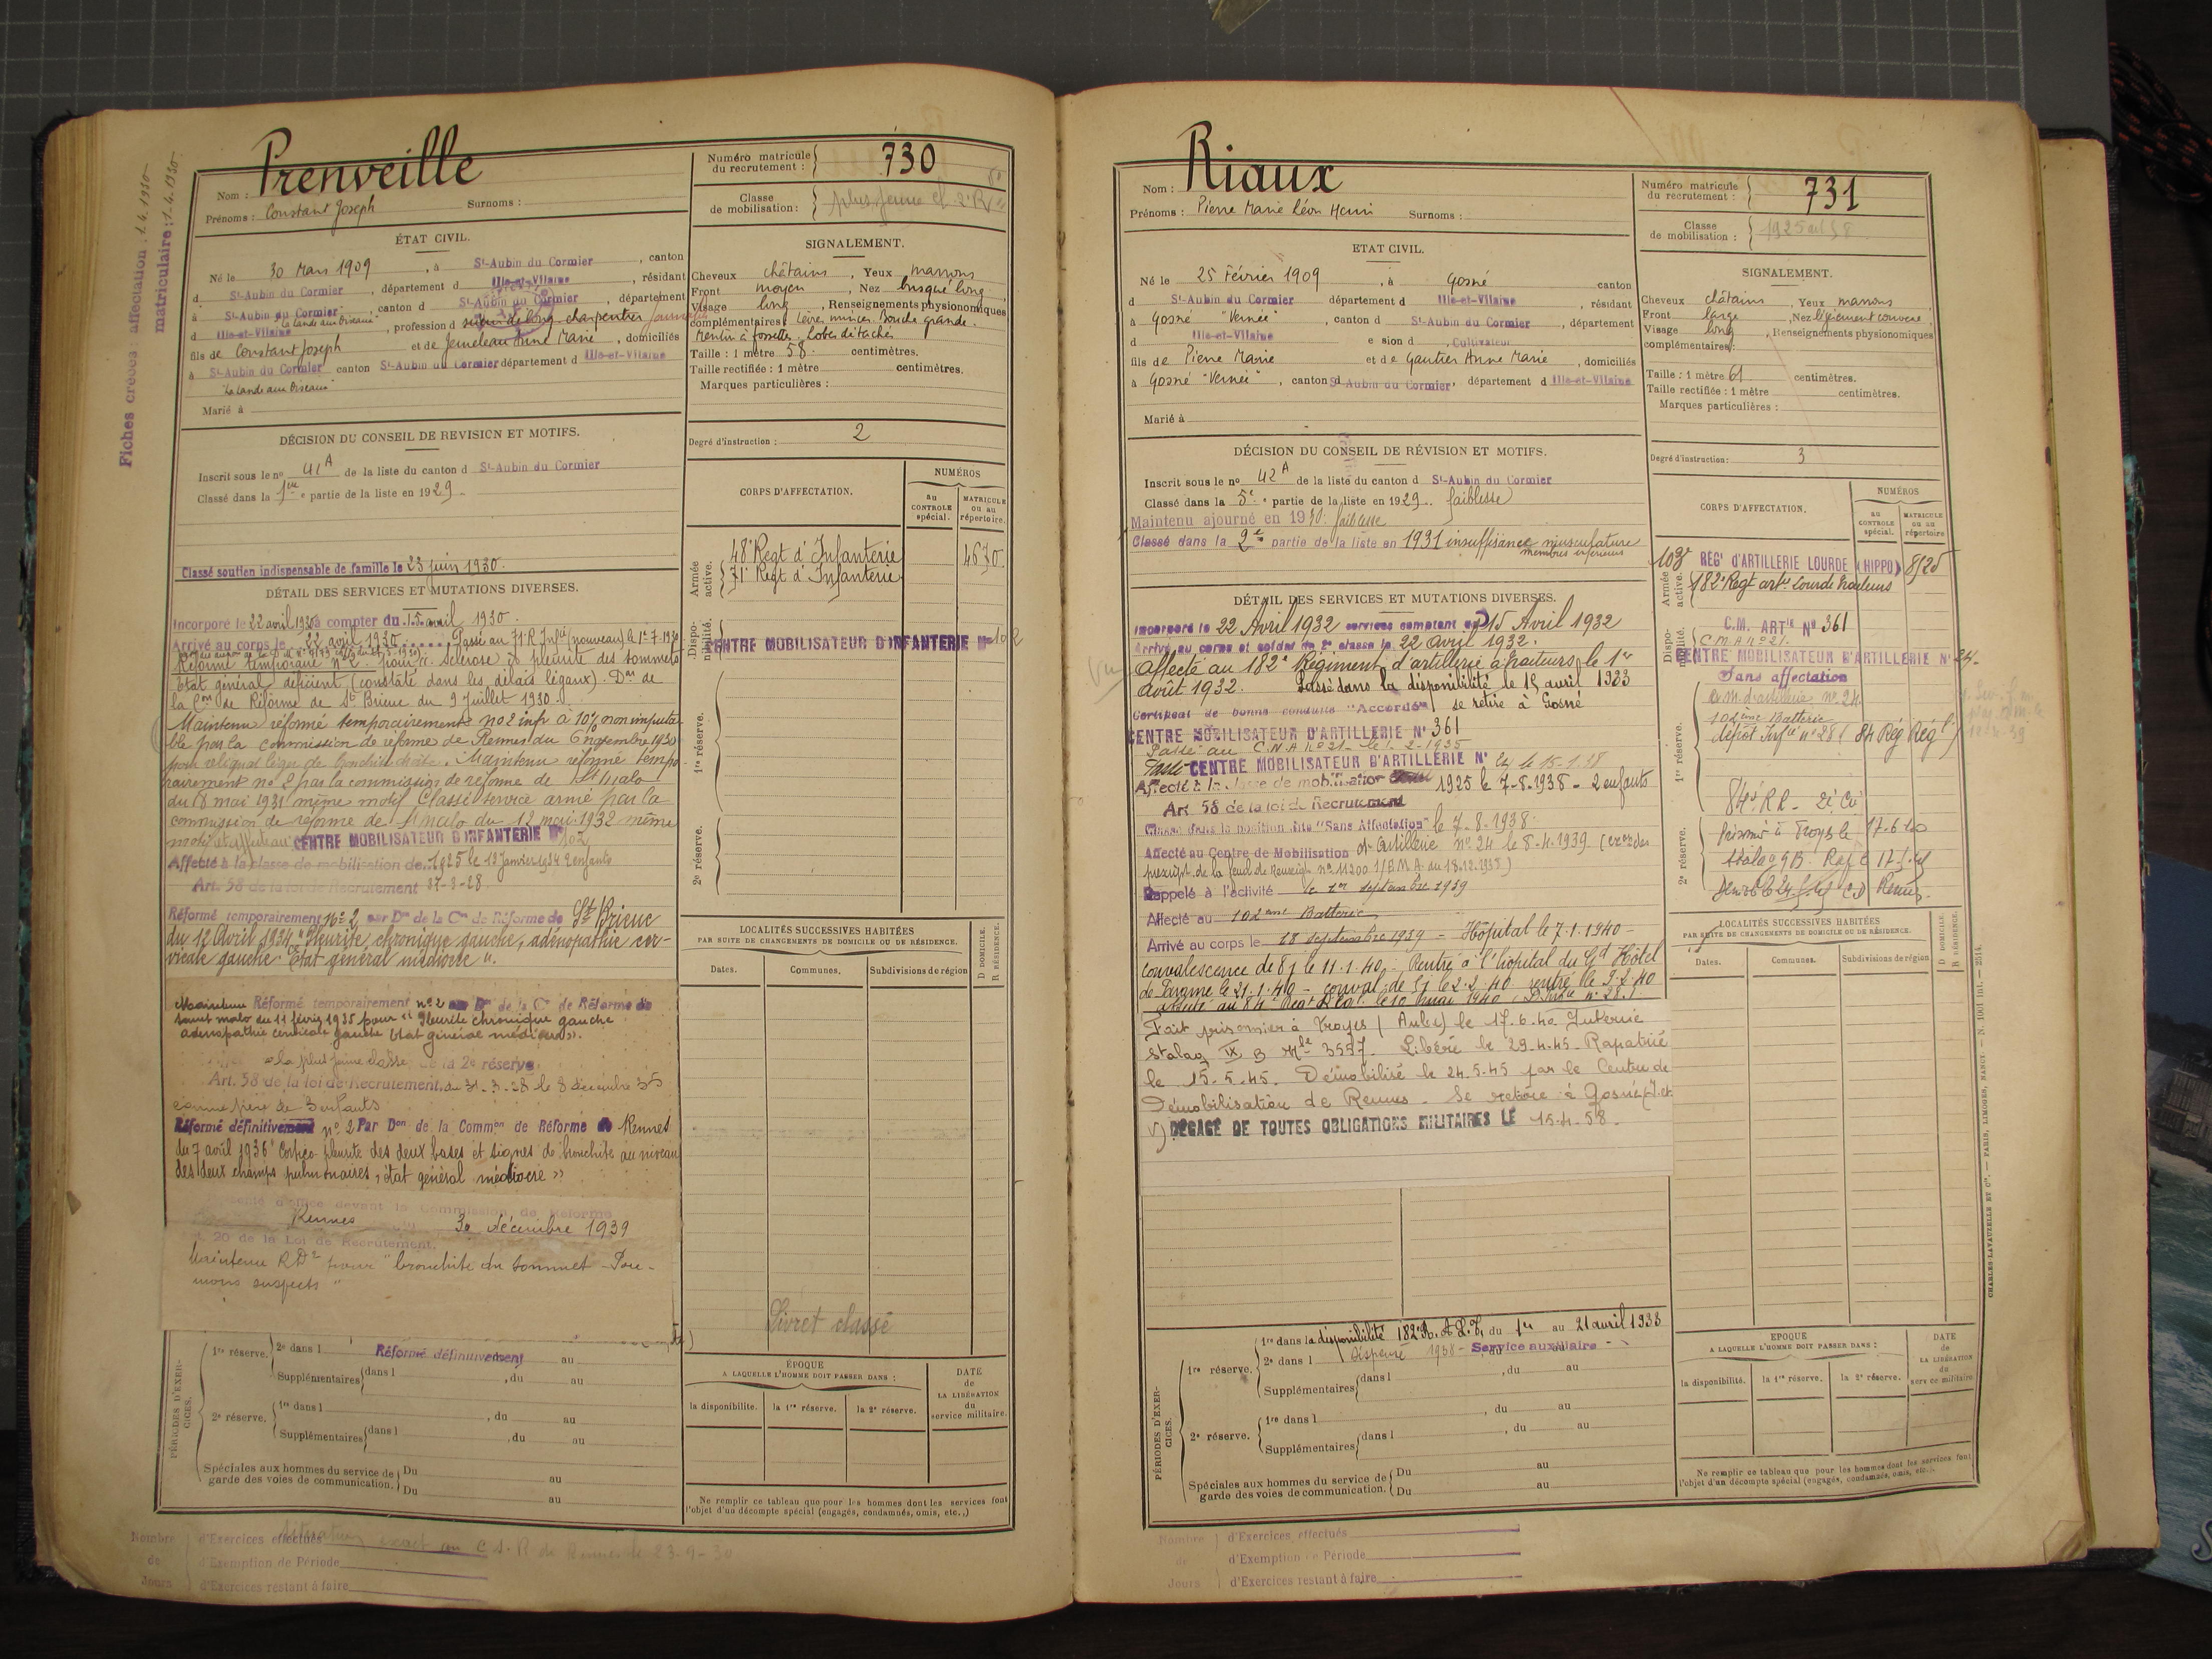 Fiches créées : affectation : 1.4.1930
matriculaire : 1.4.1930
Nom : Prenveille
Prénoms : Constant Joseph Surnoms :
Numéro matricule du recrutement : 730
Classe de mobilisation : plus jeune cl. 2e R
ÉTAT CIVIL.
Né le 30 Mars 1909, à St-Aubin du Cormier, canton
d St-Aubin du Cormier, département d Ille-et-Vilaine, résidant
à St-Aubin du Cormier, canton d St-Aubin du Cormier, département
"La Lande aux Oiseaux"
d Ille-et-Vilaine, profession d scieur de long charpentier
fils de Constant Joseph et de Jeuneleau Anne Marie, domiciliés
à St-Aubin du Cormier canton St-Aubin du Cormier département d Ille-et-Vilaine
"La Lande aux Oiseaux"
Marié à
SIGNALEMENT.
Cheveux châtains, Yeux marrons
Front moyen, Nez busqué long,
Visage long, Renseignements physionomiques
complémentaires : Lèvres minces. Bouche grande.
Menton à fossette. Lobes détachés
Taille : 1 mètre 58 centimètres.
Taille rectifiée : 1 mètre centimètres.
Marques particulières :
Degré d'instruction : 2
DÉCISION DU CONSEIL DE REVISION ET MOTIFS.
Inscrit sous le no 41A de la liste du canton d St-Aubin du Cormier
Classé dans la 1ere partie de la liste en 1929.
Classé soutien indispensable de famille le 23 juin 1930.
CORPS D'AFFECTATION.
NUMÉROS
au CONTROLE spécial.
MATRICULE ou au répertoire.
Armée active.
48e Regt d'Infanterie 4670
71e Regt d'Infanterie
Disponibilité.
CENTRE MOBILISATEUR D'INFANTERIE No 102
1re réserve.
2e réserve.
DÉTAIL DES SERVICES ET MUTATIONS DIVERSES.
Incorporé le 22 avril 1930 à compter du 15 avril 1930
Arrivé au corps le 22 avril 1930 Passé au 71e R. Infie (nouveau) le 1er-7-1930
Réformé temporaire no 2 pour Sclérose et pleurite des sommets
Etat général déficient (constaté dans les délais légaux). Don de
la Con de Réforme de St Brieuc du 9 Juillet 1930.
Maintenu réformé temporairement no 2 infr à 10% non imputa-
ble par la commission de réforme de Rennes du 6 novembre 1930
pour reliquat léger de bronchite droite. Maintenu réformé tempo-
rairement no 2 par la commission de réforme de St Malo
du 8 mai 1931 même motif Classé service armé par la
commission de réforme de St malo du 12 mai 1932 même
motif et affecté au CENTRE MOBILISATEUR D'INFANTERIE No 102
Affecté à la classe de mobilisation de 1925 le 13 Janvier 1934 2 enfants
Art. 58 de la loi de Recrutement 37-3-28
Réformé temporairement No 2 par Don de la Con de Réforme de St Brieuc
du 12 Avril 1934 "Pleurite chronique gauche, adénopathie cer-
vicale gauche. Etat général médiocre".
Maintenu Réformé temporairement no 2 par Don de la Con de Réforme de
saint malo du 11 février 1935 pour "Pleurite chronique gauche
adénopathie cervicale gauche Etat général médiocre".
la plus jeune classe de la 2e réserve
Art. 58 de la loi de Recrutement du 31-3-28 le 8 décembre 35
comme père de 3 enfants
Réformé définitivement no 2 Par Don de la Common de Réforme de Rennes
du 7 avril 1936 Cortico pleurite des deux bases et signes de bronchite au niveau
des deux champs pulmonaires, état général médiocre »
d'office devant la Commission de Réforme
Rennes du 30 décembre 1939
20 de la Loi de Recrutement.
Maintenu RD2 pour "bronchite du sommet - Pou-
mons suspects"
LOCALITÉS SUCCESSIVES HABITÉES
PAR SUITE DE CHANGEMENTS DE DOMICILE OU DE RÉSIDENCE.
D DOMICILE.
R RÉSIDENCE.
Dates. Communes. Subdivisions de région
Livret classé
PÉRIODES D'EXERCICES.
1re réserve. 2e dans l Réformé définitivement au
Supplémentaires dans l , du au
2e réserve. 1re dans l , du au
Supplémentaires dans l , du au
Spéciales aux hommes du service de garde des voies de communication. Du au
Du au
ÉPOQUE
A LAQUELLE L'HOMME DOIT PASSER DANS :
la disponibilité. la 1re réserve. la 2e réserve.
DATE de LA LIBÉRATION du service militaire.
Ne remplir ce tableau que pour les hommes dont les services font
l'objet d'un décompte spécial (engagés, condamnés, omis, etc.,)
Nombre de Jours
d'Exercices effectués
d'Exemption de Période
d'Exercices restant à faire
Nom : Riaux
Prénoms : Pierre Marie Léon Henri Surnoms :
Numéro matricule du recrutement : 731
Classe de mobilisation : 1925 art 58
ETAT CIVIL.
Né le 25 Février 1909, à Gosné canton
d St-Aubin du Cormier département d Ille-et-Vilaine, résidant
à Gosné "Vernée", canton d St-Aubin du Cormier, département
d Ille-et-Vilaine e sion d Cultivateur
fils de Pierre Marie et de Gautier Anne Marie, domiciliés
à Gosné "Vernée", canton d St-Aubin du Cormier, département d Ille-et-Vilaine
Marié à
SIGNALEMENT.
Cheveux châtains, Yeux marrons
Front large, Nez légèrement convexe
Visage long, Renseignements physionomiques
complémentaires :
Taille : 1 mètre 61 centimètres.
Taille rectifiée : 1 mètre centimètres.
Marques particulières :
Degré d'instruction : 3
DÉCISION DU CONSEIL DE RÉVISION ET MOTIFS.
Inscrit sous le no 42A de la liste du canton d St-Aubin du Cormier
Classé dans la 5e partie de la liste en 1929. faiblesse
Maintenu ajourné en 1930: faiblesse
Classé dans la 2e partie de la liste en 1931 insuffisance musculature
membres inférieurs
CORPS D'AFFECTATION.
NUMÉROS
au CONTROLE spécial.
MATRICULE ou au répertoire
Armée active.
103e REGt D'ARTILLERIE LOURDE (HIPPO) 8520
182e Regt artie Lourde tracteurs
Disponibilité.
C.M. ARTie No 361
C.M.A no 21.
CENTRE MOBILISATEUR D'ARTILLERIE No 24
Sans affectation
1re réserve.
c.m. d'artillerie no 24
102ème Batterie
dépôt Infie no 281 84 Rég Rég
84e R.R. - 2e Cie
2e réserve.
Prisonnier à Troyes le 17-6-40
Stalag 9B. Rap é 15-5-45
Démob le 24-5-45 CD Rennes
DÉTAIL DES SERVICES ET MUTATIONS DIVERSES.
Incorporé le 22 Avril 1932 services comptant du 15 Avril 1932
Arrivé au corps et soldat de 2e classe le 22 avril 1932.
Affecté au 182e Régiment d'artillerie à tracteurs le 1er
août 1932. Passé dans la disponibilité le 15 avril 1933
Certificat de bonne conduite "Accordé" se retire à Gosné
CENTRE MOBILISATEUR D'ARTILLERIE No 361
Passé au C.M.A no 21 le 1-2-1935
Passé CENTRE MOBILISATEUR D'ARTILLERIE No 24 le 15.1.38
Affecté à la classe de mobilisation 1925 le 7-8-1938 - 2 enfants
Art. 58 de la loi de Recrutement
Classé dans la position dite "Sans Affectation" le 7-8-1938
Affecté au Centre de Mobilisation d'Artillerie no 24 le 8-4-1939
Rappelé à l'activité le 1er septembre 1939
Affecté au 102ème Batterie
Arrivé au corps le 18 septembre 1939 - Hôpital le 7.1.1940 -
convalescence de 8j le 11.1.40 - Rentré à l'hôpital du Gd Hôtel
de Paramé le 21.1.40 - conval de 5j le 2.2.40 rentré le 9.2.40
affecté au 84e Régt Rég. le 10 mai 1940
Fait prisonnier à Troyes (Aube) le 17.6.40 Interné
Stalag IX B Mle 3557. Libéré le 29.4.45. Rapatrié
le 15.5.45. Démobilisé le 24.5.45 par le Centre de
Démobilisation de Rennes. Se retire à Gosné (I. et
V) DÉGAGÉ DE TOUTES OBLIGATIONS MILITAIRES LE 15.4.58.
LOCALITÉS SUCCESSIVES HABITÉES
PAR SUITE DE CHANGEMENTS DE DOMICILE OU DE RÉSIDENCE.
D DOMICILE.
R RÉSIDENCE.
Dates. Communes. Subdivisions de région
PÉRIODES D'EXERCICES.
1re réserve. 1re dans la disponibilité 182e R.A.L.T. du 1er au 21 avril 1933
2e dans l Dispensé 1938 - Service auxiliaire
Supplémentaires dans l , du au
2e réserve. 1re dans l , du au
Supplémentaires dans l , du au
Spéciales aux hommes du service de garde des voies de communication. Du au
Du au
EPOQUE
A LAQUELLE L'HOMME DOIT PASSER DANS :
la disponibilité. la 1re réserve. la 2e réserve.
DATE de LA LIBÉRATION du service militaire.
Ne remplir ce tableau que pour les hommes dont les services font
l'objet d'un décompte spécial (engagés, condamnés, omis, etc.).
CHARLES-LAVAUZELLE ET Cie. — PARIS, LIMOGES, NANCY. — N. 1001 int. — 2514.
Nombre de Jours
d'Exercices effectués
d'Exemption de Période
d'Exercices restant à faire